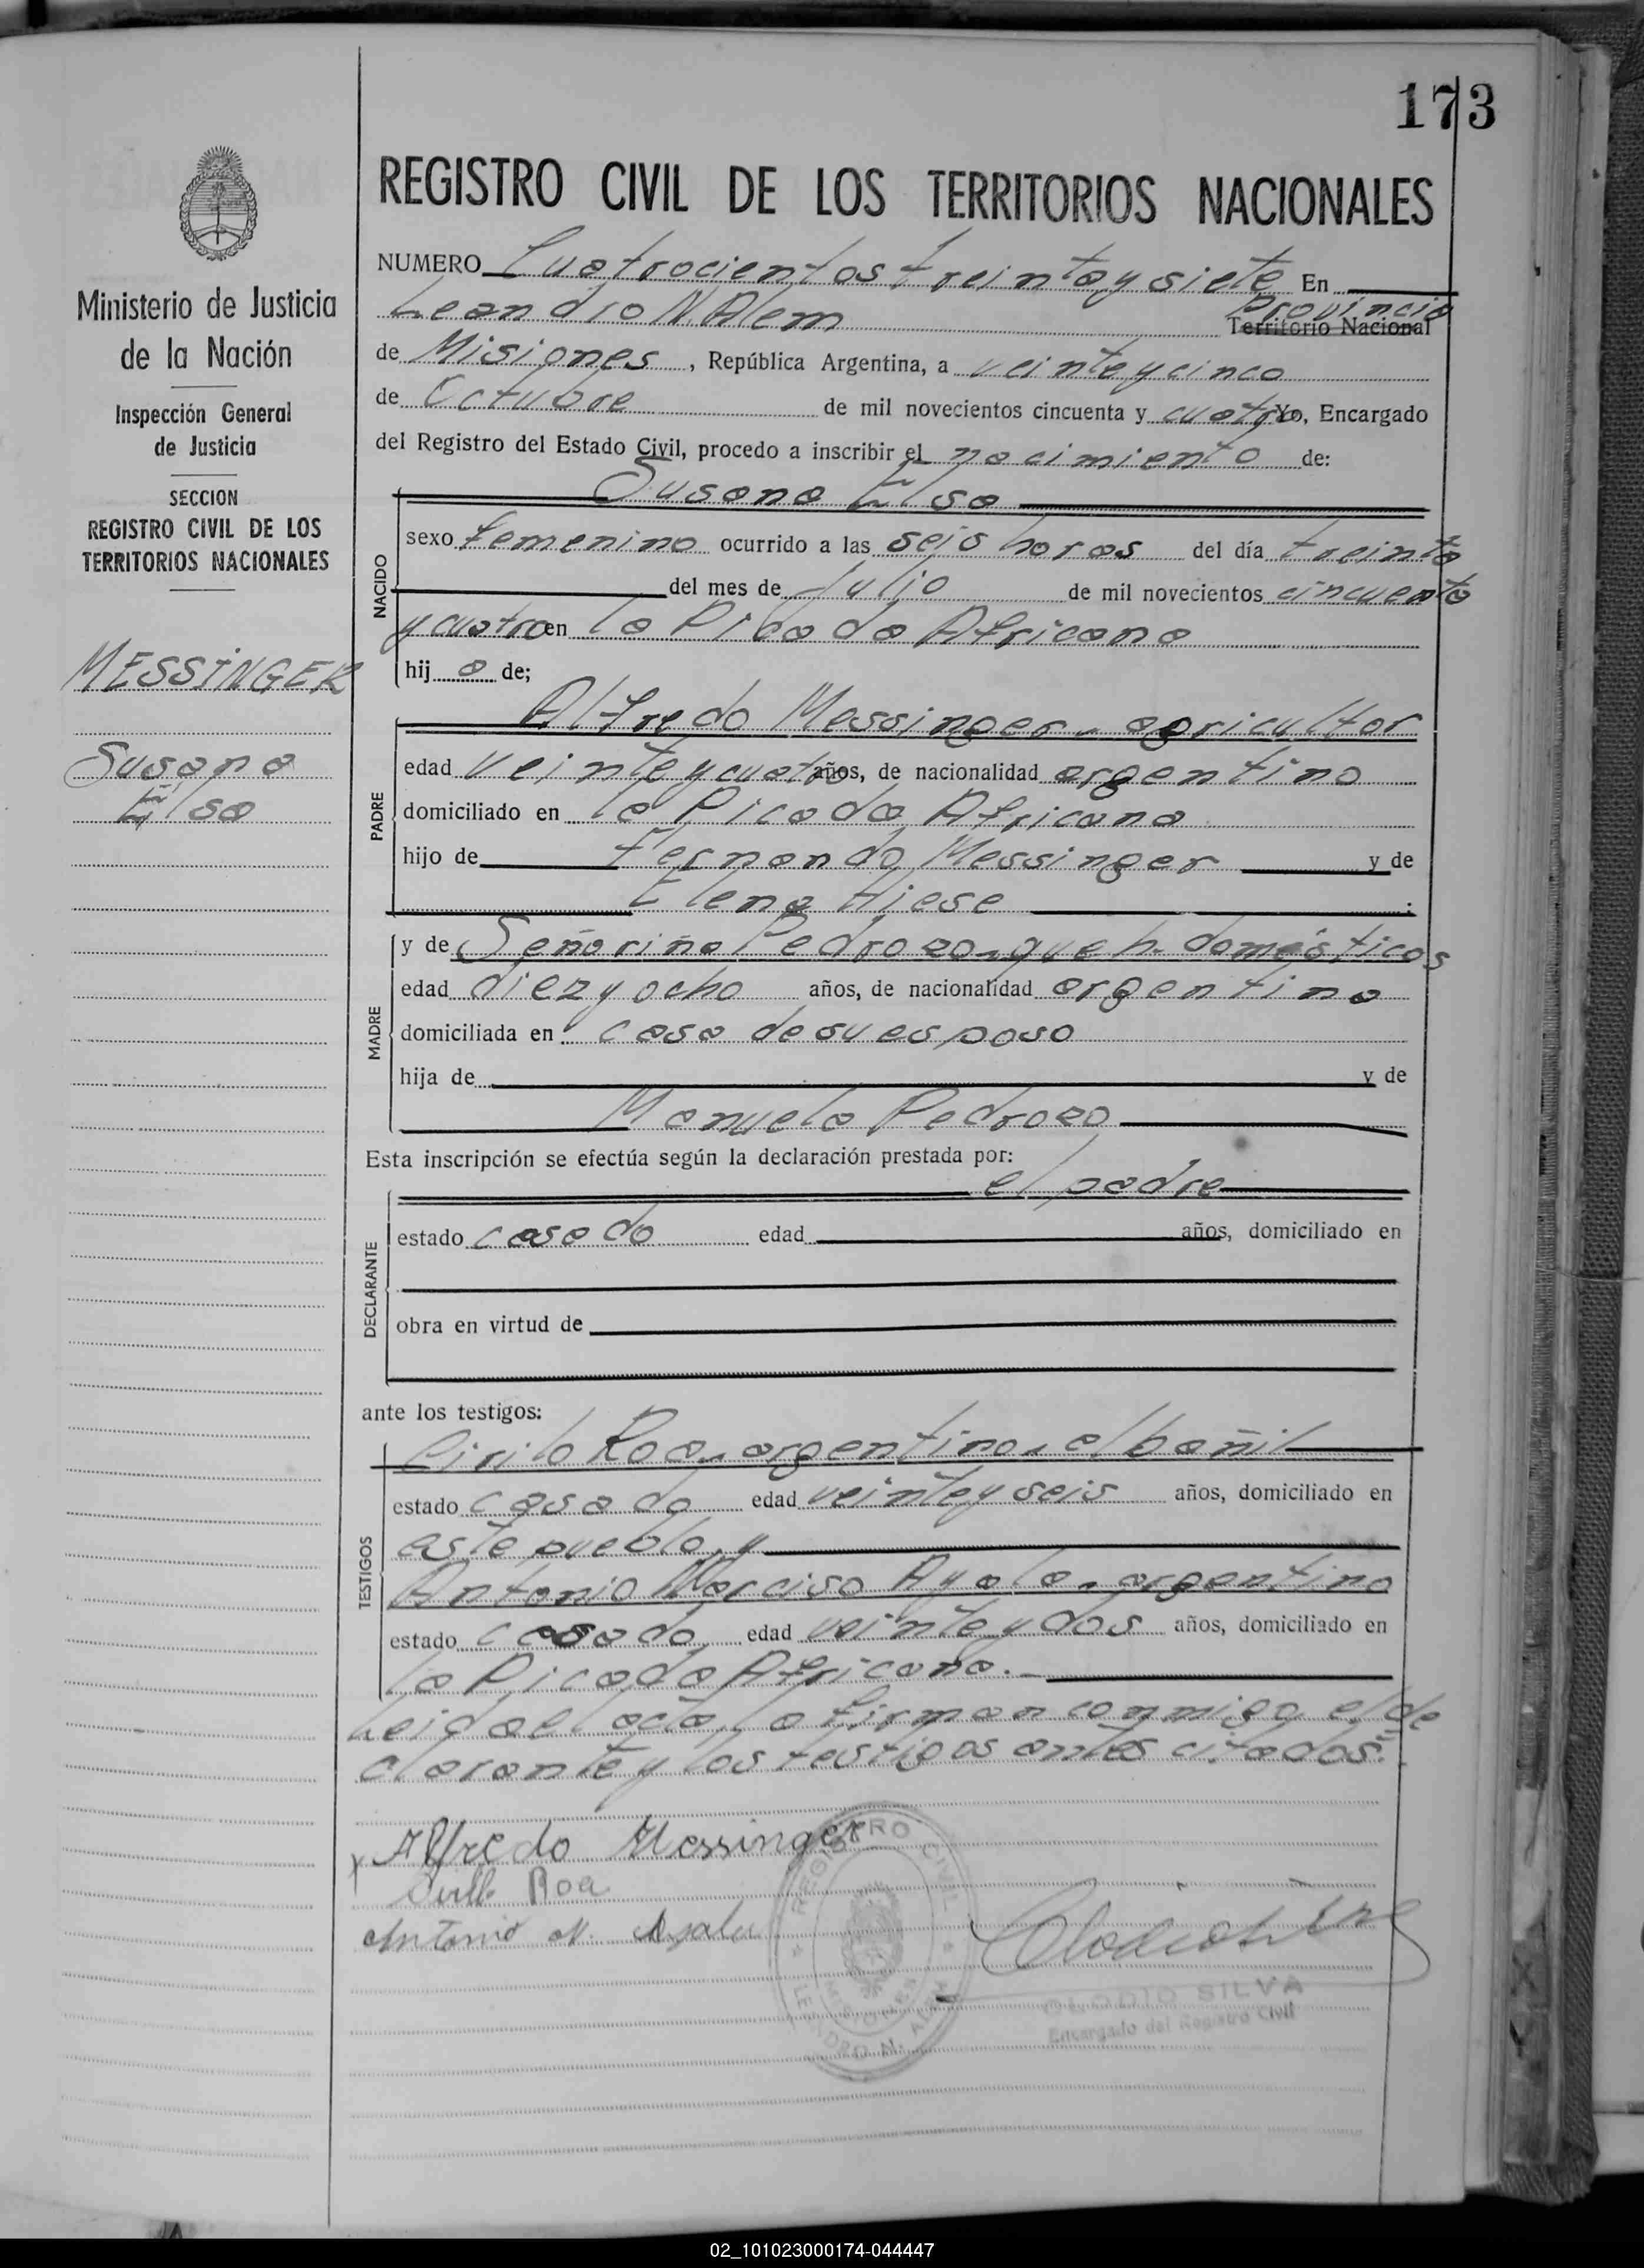 173
REGISTRO CIVIL DE LOS TERRITORIOS NACIONALES
Ministerio de Justicia
de la Nación
Inspección General
de Justicia
SECCION
REGISTRO CIVIL DE LOS
TERRITORIOS NACIONALES
MESSINGER
Susana
Elsa
NUMERO Cuatrocientos treinta y siete En
Leandro N. Alem Provincia
Territorio Nacional
de Misiones, República Argentina, a veinte y cinco
de Octubre de mil novecientos cincuenta y cuatro Yo, Encargado
del Registro del Estado Civil, procedo a inscribir el nacimiento de:
Susana Elsa
NACIDO
sexo femenino ocurrido a las seis horas del día treinta
del mes de Julio de mil novecientos cincuenta
y cuatro en la Picada Africana
hij a de;
Alfredo Messinger, agricultor
PADRE
edad veinte y cuatro años, de nacionalidad argentino
domiciliado en la Picada Africana
hijo de Fernando Messinger y de
Elena
y de Señoriña Pedrozo, queh. domésticos
MADRE
edad diez y ocho años, de nacionalidad argentina
domiciliada en casa de su esposo
hija de y de
Manuela Pedrozo
Esta inscripción se efectúa según la declaración prestada por:
el padre
DECLARANTE
estado casado edad años, domiciliado en
obra en virtud de
ante los testigos:
Cirilo Roa, argentino, albañil
TESTIGOS
estado casado edad veinte y seis años, domiciliado en
este pueblo, y
Antonio Narciso Ayala, argentino
estado casado, edad veinte y dos años, domiciliado en
la Picada Africana.
Leida el acta, la firman conmigo el de
clarante y los testigos antes citados.
x Alfredo Messinger
Roa
Antonio N. Ayala
REGISTRO CIVIL
MISIONES
LEANDRO N. ALEM
CLODIO SILVA
Encargado del Registro Civil
02_101023000174-044447